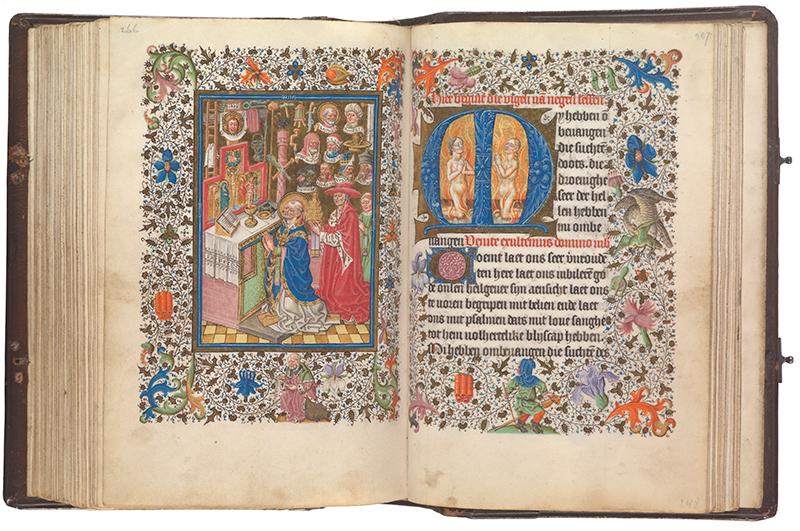 266
267
Hier begint die vigeli van negen lessen
My hebben
bevangen
die suchten
doots. die
droevighe
seer der hel
len hebben
mi ombe
vangen Venite exultemus domino
Coemt laet ons seer
ten here laet ons iubileren
de onsen heilgever syn aensicht laet ons
te voren begripen mit belien ende laet
ons mit psalmen dats mit love sanghe
tot hem volhertelike blyscap hebben
Mi hebben ombevangen die suchten des